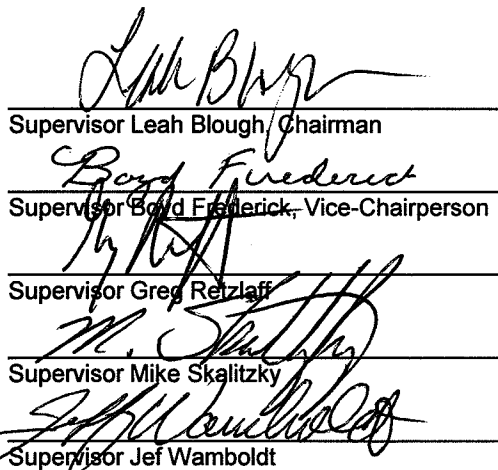 Leah Blough
Supervisor Leah Blough, Chairman
Boyd Frederick
Supervisor Boyd Frederick, Vice-Chairperson
Supervisor Greg Retzlaff
M. Skalitzky
Supervisor Mike Skalitzky
Jeff Wamboldt
Supervisor Jef Wamboldt